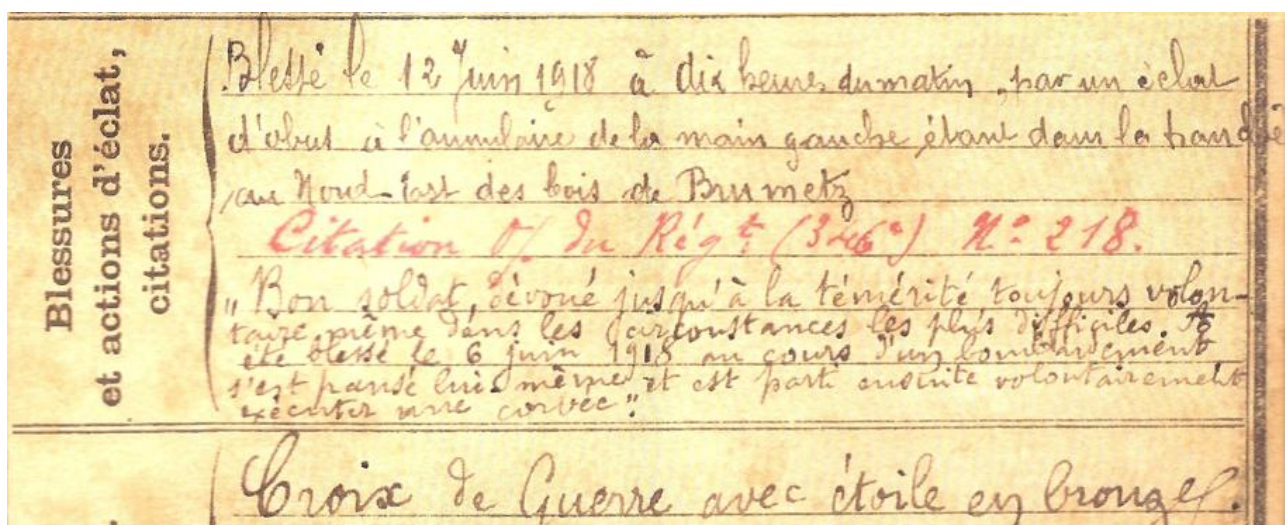 Blessures
et actions d'éclat,
citations.
Blessé le 12 Juin 1918 à dix heures du matin, par un éclat
d'obus à l'annulaire de la main gauche étant dans la tranchée
au Nord-Est des bois de Brumetz
Citation O/ du Régt (346e) No 218.
"Bon soldat, dévoué jusqu'à la témérité toujours volon-
taire même dans les circonstances les plus difficiles. A
été blessé le 6 juin 1918 au cours d'un bombardement,
s'est pansé lui-même et est parti ensuite volontairement
exécuter une corvée".
Croix de Guerre avec étoile en bronze.